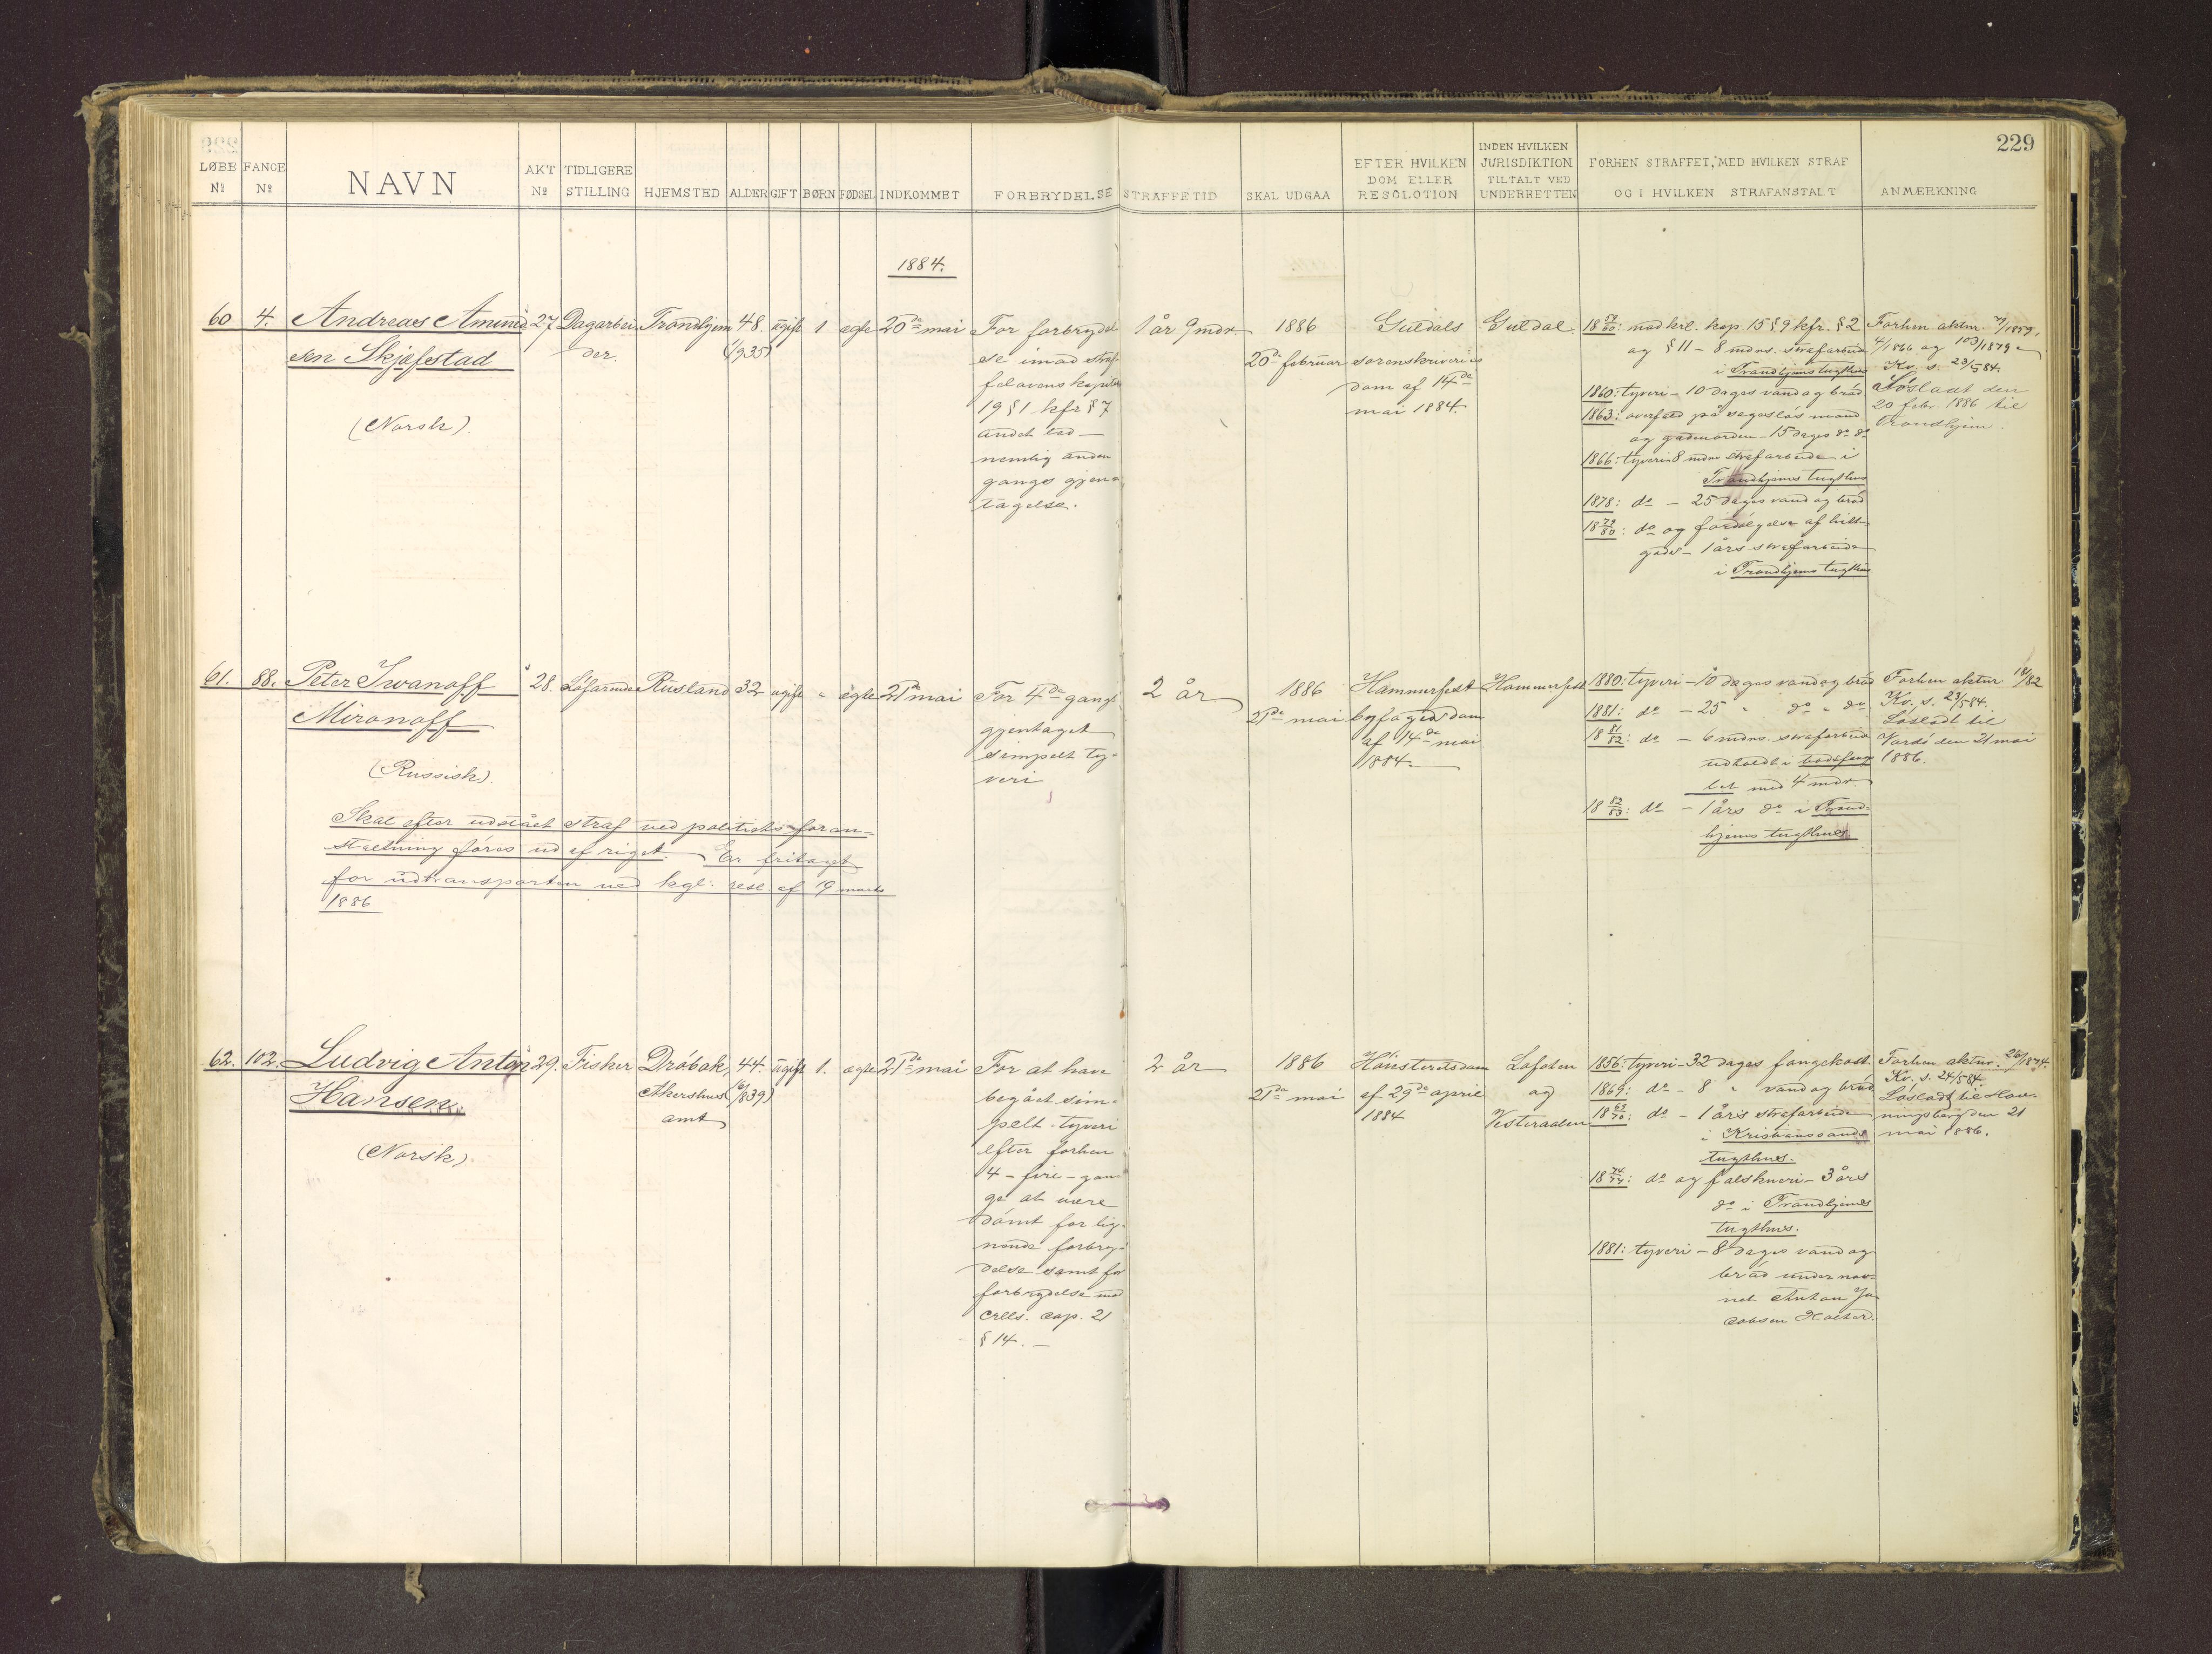 229
LØBE
Nº
FANGE
Nº
NAVN
AKT
Nº
TIDLIGERE
STILLING
HJEMSTED
ALDER
GIFT
BØRN
FØDSEL
INDKOMMET
FORBRYDELSE
STRAFFETID
SKAL UDGAA
EFTER HVILKEN
DOM ELLER
RESOLOTION
INDEN HVILKEN
JURISDIKTION
TILTALT VED
UNDERRETTEN
FORHEN STRAFFET, MED HVILKEN STRAF
OG I HVILKEN STRAFANSTALT
ANMÆRKNING
1884.
60
4.
Andreas Amund
sen Skjefestad
(Norsk).
27
Dagarbei
der.
Trondhjem
48.
(1/935)
ugift
1
ægte
20de mai
For forbrydel
se imod straf
felovens kapitel
19 § 1 kfr § 7
andet led —
nemlig anden
gangs gjen
tagelse.
1 år 9 mdr.
1886
20de februar
Guldals
sorenskriveries
dom af 14de
mai 1884.
Guldal.
18 59/60: mod krl. kap. 15 § 9 kfr. § 2
og § 11 – 8 mdrs. strafarbeid
i Trondhjems tugthus
1860: tyveri – 10 dages vand og bröd
1863: overfald på sageslös mand
og gadeuorden – 15 dages do do
1866: tyveri 8 mdrs strafarbeide i
Trondhjems tugthus
1878: do – 25 dages vand og bröd
18 79/80: do og fordølgelse af hitte
gods – 1 års strafarbeide
i Trondhjems tugthus
Forhen aktnr. /1859,
4/1866 og 103/1879
Kv. s. 23/584.
Lösladt den
20 febr. 1886 til
Trondhjem.
61.
88.
Peter Iwanoff
Mironoff
(Russisk).
Skal efter udstået straf ved politiets foran-
staltning föres ud af riget. Er fritaget
for udtransporten ved kgl. resl. af 19 marts
1886
28.
Löfarende
Rusland
32
ugift
"
ægte
21de mai
For 4de gang
gjentaget
simpelt ty-
veri
2 år
1886
21de mai
Hammerfest
byfogeds dom
af 14de mai
1884.
Hammerfest
1880: tyveri – 10 dages vand og bröd
1881: do – 25 " do " do
18 81/82: do – 6 mdrs. strafarbeid
udholdt i bodsfæng
let med 4 mdr.
18 82/83: do – 1 års do i Trond-
hjems tugthus
Forhen aktnr. 18/82
Kv. s. 23/584.
Lösladt til
Vardö den 21 mai
1886.
62.
102.
Ludvig Anton
Hansen.
(Norsk)
29.
Fisker
Dröbak,
Akershus
amt
44.
(6/839)
ugift
1.
ægte
21de mai
For at have
begået sim-
pelt tyveri
efter forhen
4 – fire – gan
ge at være
dömt for lig-
nende forbry-
delse samt for
forbrydelse mod
Crlls. Cap. 21
§ 14. —
2 år
1886
21de mai
Höiesteretsdom
af 29de april
1884
Lofoten
og
Vesteraalen
1856: tyveri – 32 dages fangekost
1869: do – 8 " vand og bröd
18 69/70: do – 1 års strafarbeide
i Kristianssands
tugthus.
18 74/77: do og falskneri – 3 års
do i Trondhjems
tugthus.
1881: tyveri – 8 dages vand og
bröd under nav-
net Anton Ja-
cobsen
Forhen aktnr. 26/1874.
Kv. s. 24/584.
Lösladt til Hon-
ningsvåg den 21
mai 1886.